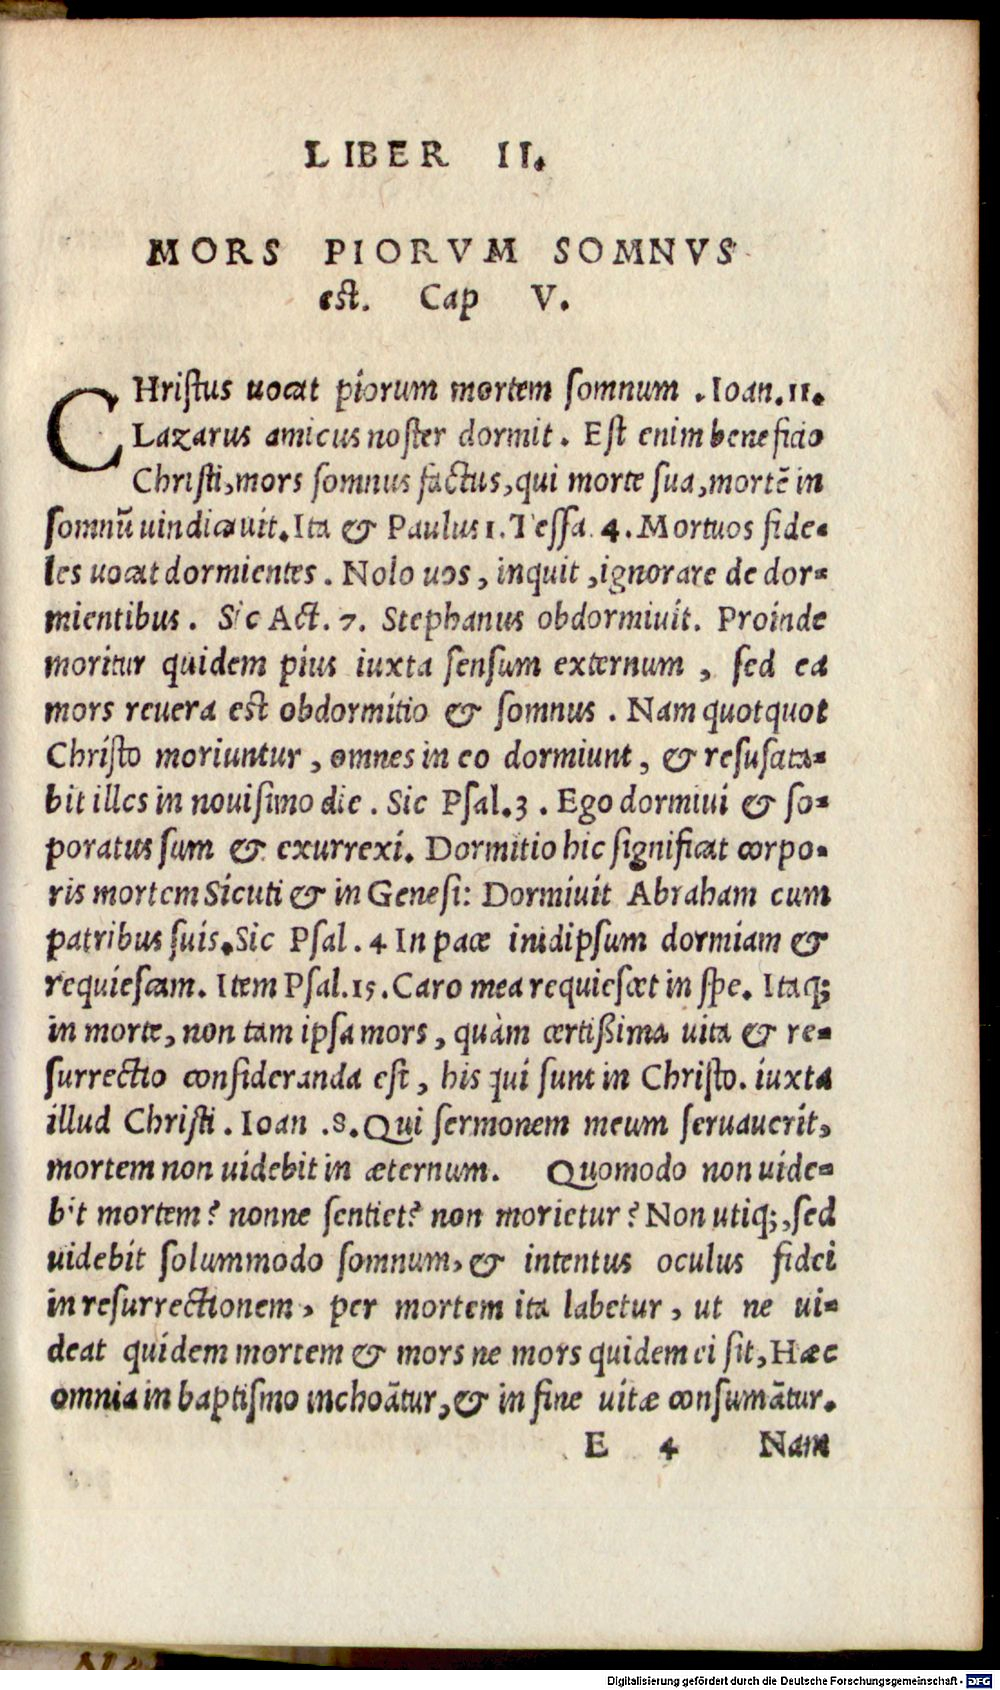 LIBER II.
MORS PIORVM SOMNVS
est. Cap V.
CHristus uocat piorum mortem somnum . Ioan.11.
Lazarus amicus noster dormit. Est enim beneficio
Christi,mors somnus factus,qui morte sua,mortẽ in
somnũ uindicauit.Ita & Paulus 1.Tessa. 4.Mortuos fide-
les uocat dormientes. Nolo uos, inquit ,ignorare de dor-
mientibus. Sic Act. 7. Stephanus obdormiuit. Proinde
moritur quidem pius iuxta sensum externum , sed ea
mors reuera est obdormitio & somnus . Nam quotquot
Christo moriuntur , omnes in eo dormiunt, & resuscita-
bit illos in nouisimo die . Sic Psal.3 . Ego dormiui & so-
poratus sum & exurrexi. Dormitio hic significat corpo-
ris mortem Sicuti & in Genesi: Dormiuit Abraham cum
patribus suis.Sic Psal . 4 In pace inidipsum dormiam &
requiescam. Item Psal.15.Caro mea requiescet in spe. Itaq;
in morte, non tam ipsa mors , quàm certißima uita & re-
surrectio consideranda est, his qui sunt in Christo. iuxta
illud Christi . Ioan .8.Qui sermonem meum seruauerit,
mortem non uidebit in æternum. Quomodo non uide-
bit mortem? nonne sentiet? non morietur? Non utiq;,sed
uidebit solummodo somnum,& intentus oculus fidei
in resurrectionem, per mortem ita labetur , ut ne ui-
deat quidem mortem & mors ne mors quidem ei sit, Hæc
omnia in baptismo inchoãtur,& in fine uitæ consumãtur.
E 4 Nam
Digitalisierung gefördert durch die Deutsche Forschungsgemeinschaft - DFG